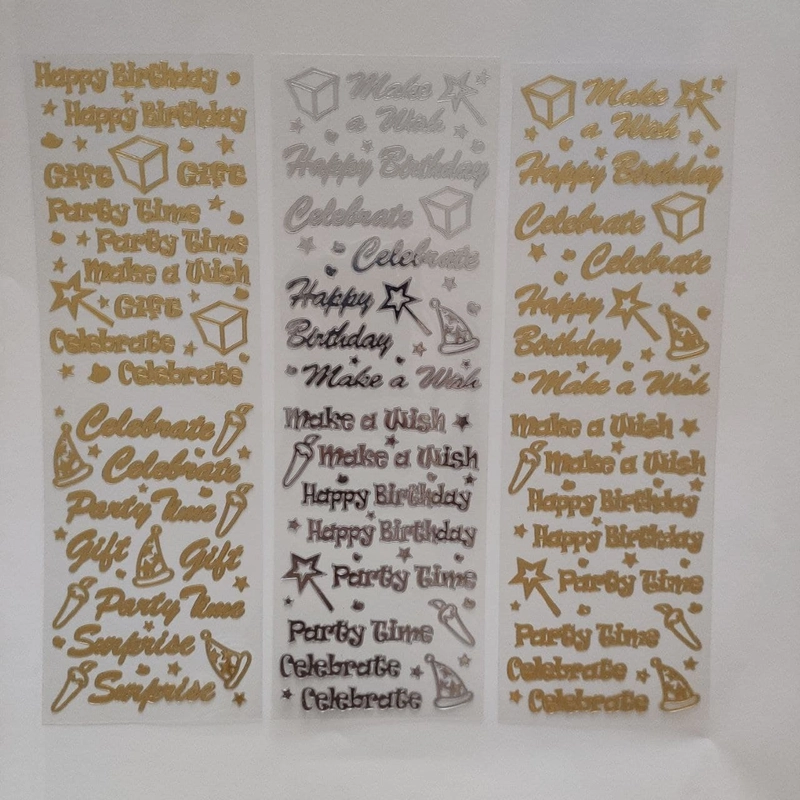 Happy Birthday
Happy Birthday
Gift Gift
Party Time
Party Time
Make a Wish
Gift
Celebrate
Celebrate
Celebrate
Celebrate
Party Time
Gift Gift
Party Time
Surprise
Surprise
Make
a Wish
Happy Birthday
Celebrate
Celebrate
Happy
Birthday
Make a Wish
Make a Wish
Make a Wish
Happy Birthday
Happy Birthday
Party Time
Party Time
Celebrate
Celebrate
Make
a Wish
Happy Birthday
Celebrate
Celebrate
Happy
Birthday
Make a Wish
Make a Wish
Make a Wish
Happy Birthday
Happy Birthday
Party Time
Party Time
Celebrate
Celebrate